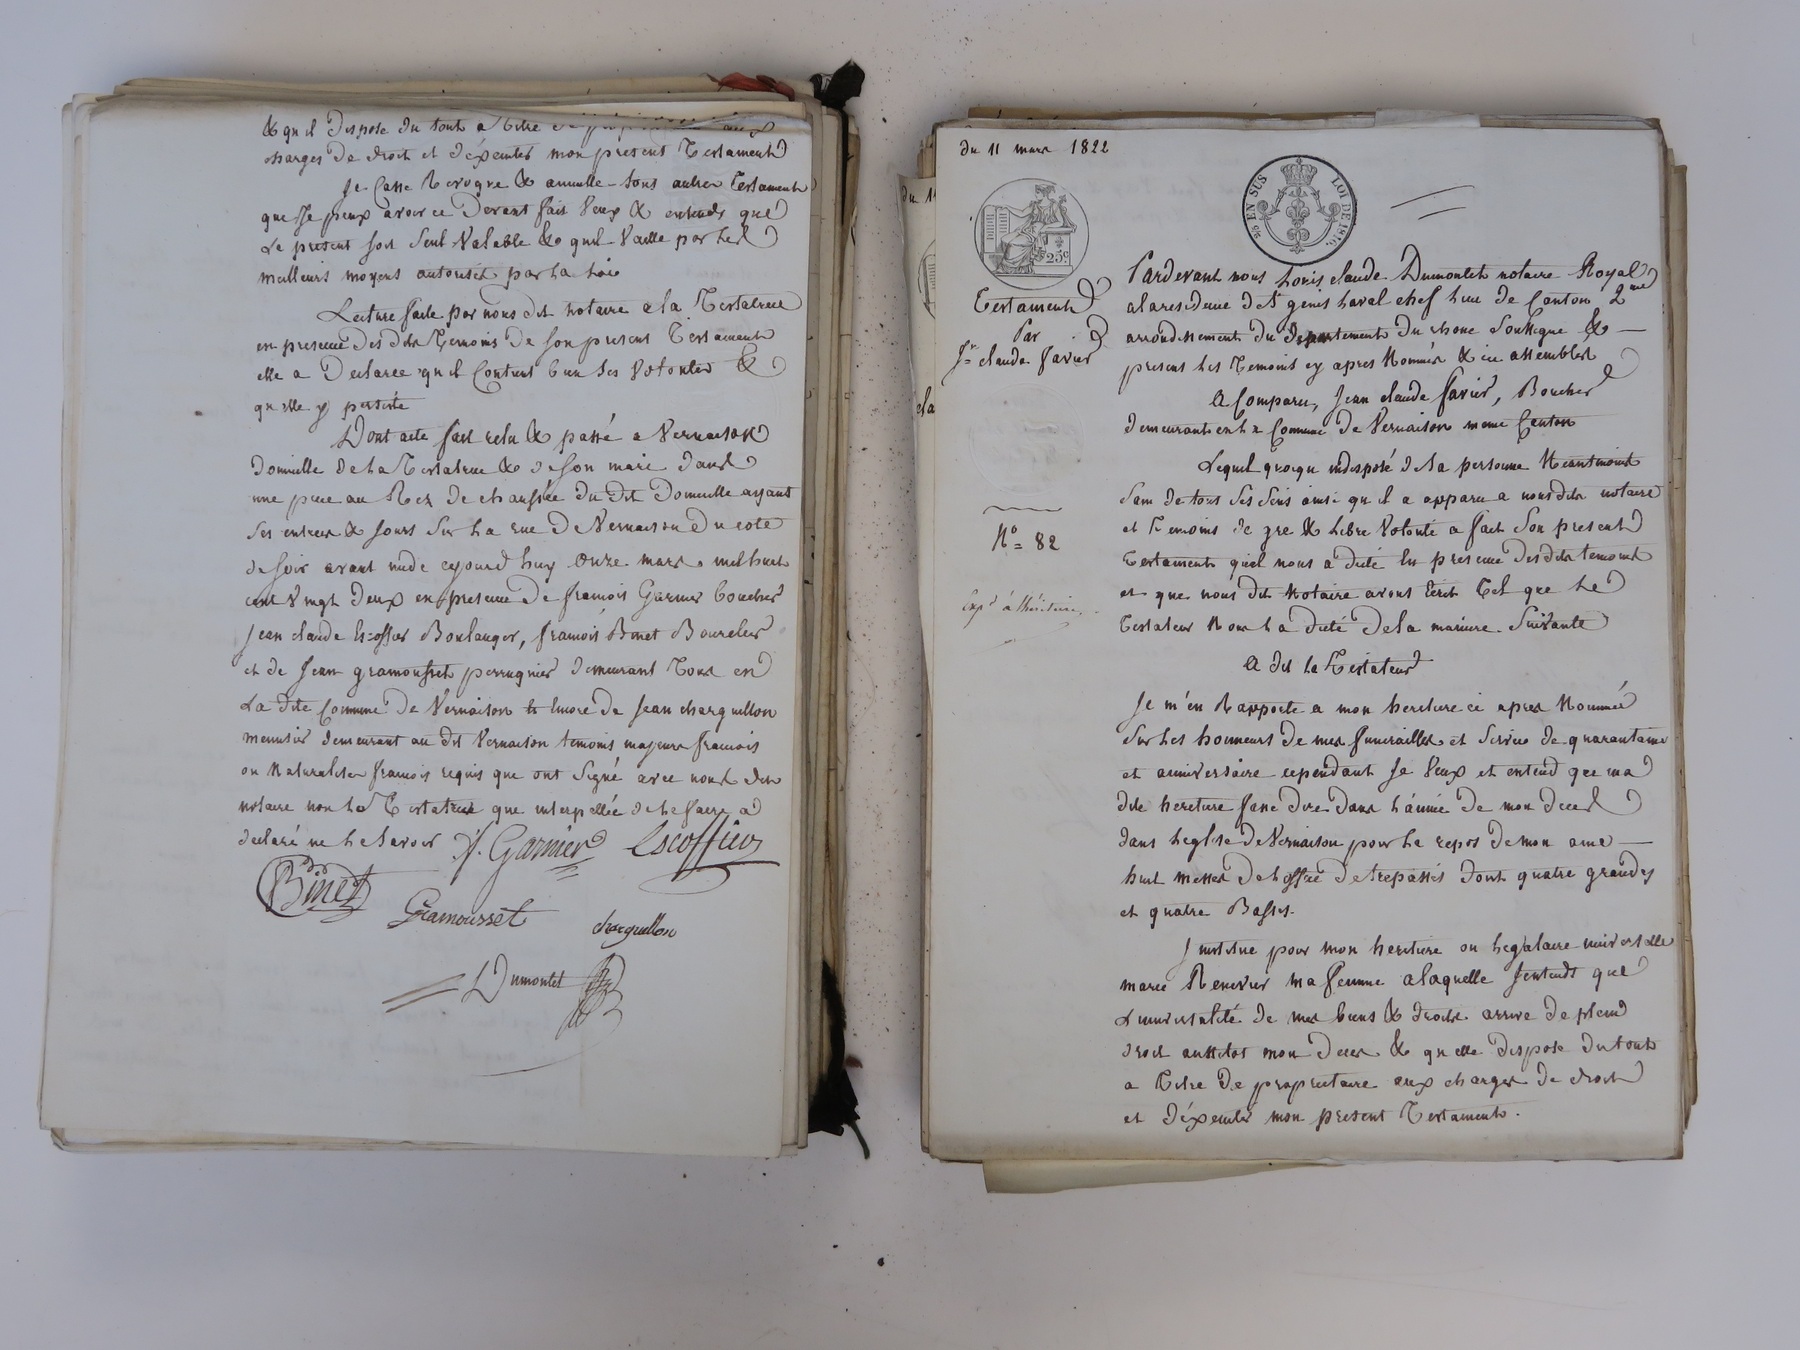 & qu'il dispose du tout a titre de
charges de droit et d'éxecuter mon present Testament
Je Casse Revoque & annulle tous autres Testaments
que Je peux avoir ce devant fait Veux & entends que
Le present soit seul Valable & qu'il Vaille par les
meilleurs moyens autorisés par La Loi
Lecture faite par nous dit notaire a la Testatrice
en presence des dits Temoins de son present Testament
elle a Declarée qu'il Contient bien ses Volontés &
qu'elle y persiste
Dont acte fait relu & passé a Vernaison
domicile de La Testatrice & de son mari dans
une piece au Rez de chaussée du dit Domicile ayant
ses entrées & jours sur La rue de Vernaison du coté
de soir avant midi cejourd'huy onze mars mil huit
cent Vingt deux en presence de francois Garnier boucher
Jean claude Escoffier Boulanger, francois Binet Bourelier
et de Jean gramousset perruquier demeurant Tous en
La dite Commune de Vernaison & encore de Jean charquillon
menuisier demeurant au dit Vernaison temoins majeurs francois
ou Naturalisés francois requis que ont signé avec nous dit
notaire non La Testatrice que interpellée de le faire a
declaré ne le savoir f. Garnier Escoffier
Binet
Gramousset charquillon
Dumontet
du 11 mars 1822
EN SUS LOI DE 1816.
25c
Testament
Par
Jn claude favier
N° = 82
Expé à l'héritière
Pardevant nous Louis claude Dumontet notaire Royal
a la residence de St genis Laval chef lieu de Canton 2me
arrondissement du Departement du rhone soussigne &
present Les Temoins cy apres Nommés & ici assemblés
A Comparu, Jean claude favier, Boucher
demeurant en La Commune de Vernaison meme Canton
Lequel quoique indisposé de sa personne Neantmoins
sain de tous ses sens ainsi qu'il a apparu a nous dit notaire
et Temoins de gre & Libre Volonté a fait son present
Testament qu'il nous a dicté en presence des dits temoins
et que nous dit Notaire avons Ecrit Tel que Le
Testateur Nous L'a dicté de la maniere suivante
A dit Le Testateur
Je m'en Rapporte a mon heritiere ci apres Nommée
sur Les honneurs de mes funerailles et service de quarantaine
et anniversaire cependant Je Veux et entend que ma
dite heritiere fasse dire dans L'année de mon deces
dans L'eglise de Vernaison pour Le repos de mon ame
huit messes de L'office de trepassés dont quatre grandes
et quatre Basses.
J'institue pour mon heritiere ou Legataire universelle
marie Renevier ma femme a laquelle J'entends que
L'universalité de mes biens & droits arrive de plein
droit aussitot mon deces & qu'elle dispose du tout
a Titre de proprietaire aux charges de droit
et d'éxecuter mon present Testament.